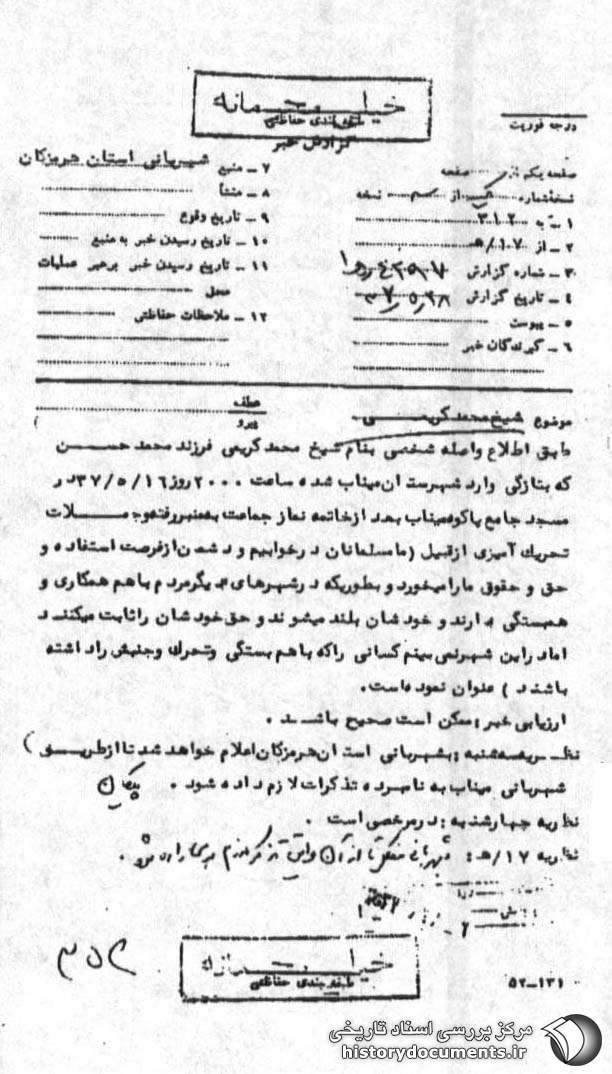 خیلی محرمانه
طبقه بندی حفاظتی
گزارش خبر
درجه فوریت
صفحه یکم از صفحه
نسخه شماره یک از نسخه
۱ ـ به ۳۱۲
۲ ـ از ۱۷ / هـ
۳ ـ شماره گزارش
۴ ـ تاریخ گزارش ۳۷٫۵٫۲۸
۵ ـ پیوست
۶ ـ گیرندگان خبر
۷ ـ منبع شهربانی استان هرمزگان
۸ ـ منشأ
۹ ـ تاریخ وقوع
۱۰ ـ تاریخ رسیدن خبر به منبع
۱۱ ـ تاریخ رسیدن خبر برهبر عملیات
محل
۱۲ ـ ملاحظات حفاظتی
موضوع شیخ محمد کریمی
عطف
پیرو
طبق اطلاع واصله شخصی بنام شیخ محمد کریمی فرزند محمد حسن
که بتازگی وارد شهرستان میناب شده ساعت ۲۰۰۰ روز ۳۷/۵/۱۶ در
مسجد جامع پاکوه میناب بعد از خاتمه نماز جماعت به منبر رفته و جملات
تحریک آمیزی از قبیل (ما مسلمانان در خوابیم و دشمن از فرصت استفاده و
حق و حقوق ما را میخورد و بطوریکه در شهرهای دیگر مردم با هم همکاری و
همبستگی دارند و خودشان بلند میشوند و حق خودشان را ثابت میکنند
اما در این شهر نمی بینم کسانی را که با هم بستگی و تحرک و جنبش را داشته
باشند) عنوان نموده است.
ارزیابی خبر: ممکن است صحیح باشد.
نظریه سه شنبه: بشهربانی استان هرمزگان اعلام خواهد شد تا از طریق
شهربانی میناب به نامبرده تذکرات لازم داده شود.
نظریه چهارشنبه: در مرخصی است.
نظریه ۱۷/هـ:
خیلی محرمانه
طبقه بندی حفاظتی
۵۲ـ۱۳۱
مرکز بررسی اسناد تاریخی
historydocuments.ir